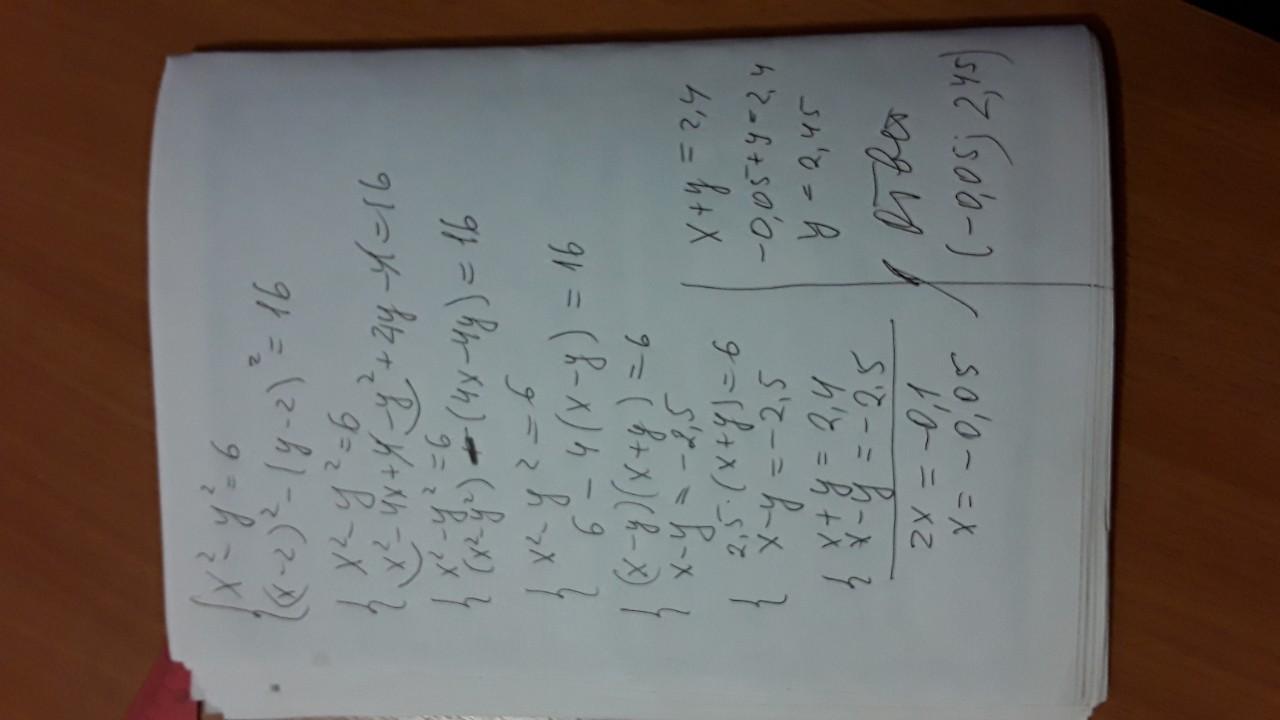 { x² - y² = 6
{ (x-2)² - (y-2)² = 16
{ x² - y² = 6
{ x² - 4x + 4 - y² + 4y - 4 = 16
{ x² - y² = 6
{ (x² - y²) - (4x - 4y) = 16
{ x² - y² = 6
{ 6 - 4(x-y) = 16
{ (x-y)(x+y) = 6
{ x - y = -2,5
{ 2,5·(x+y) = 6
{ x - y = -2,5
{ x + y = 2,4
{ x - y = -2,5
2x = -0,1
x = -0,05
x + y = 2,4
-0,05 + y = 2,4
y = 2,45
Ответ
(-0,05; 2,45)